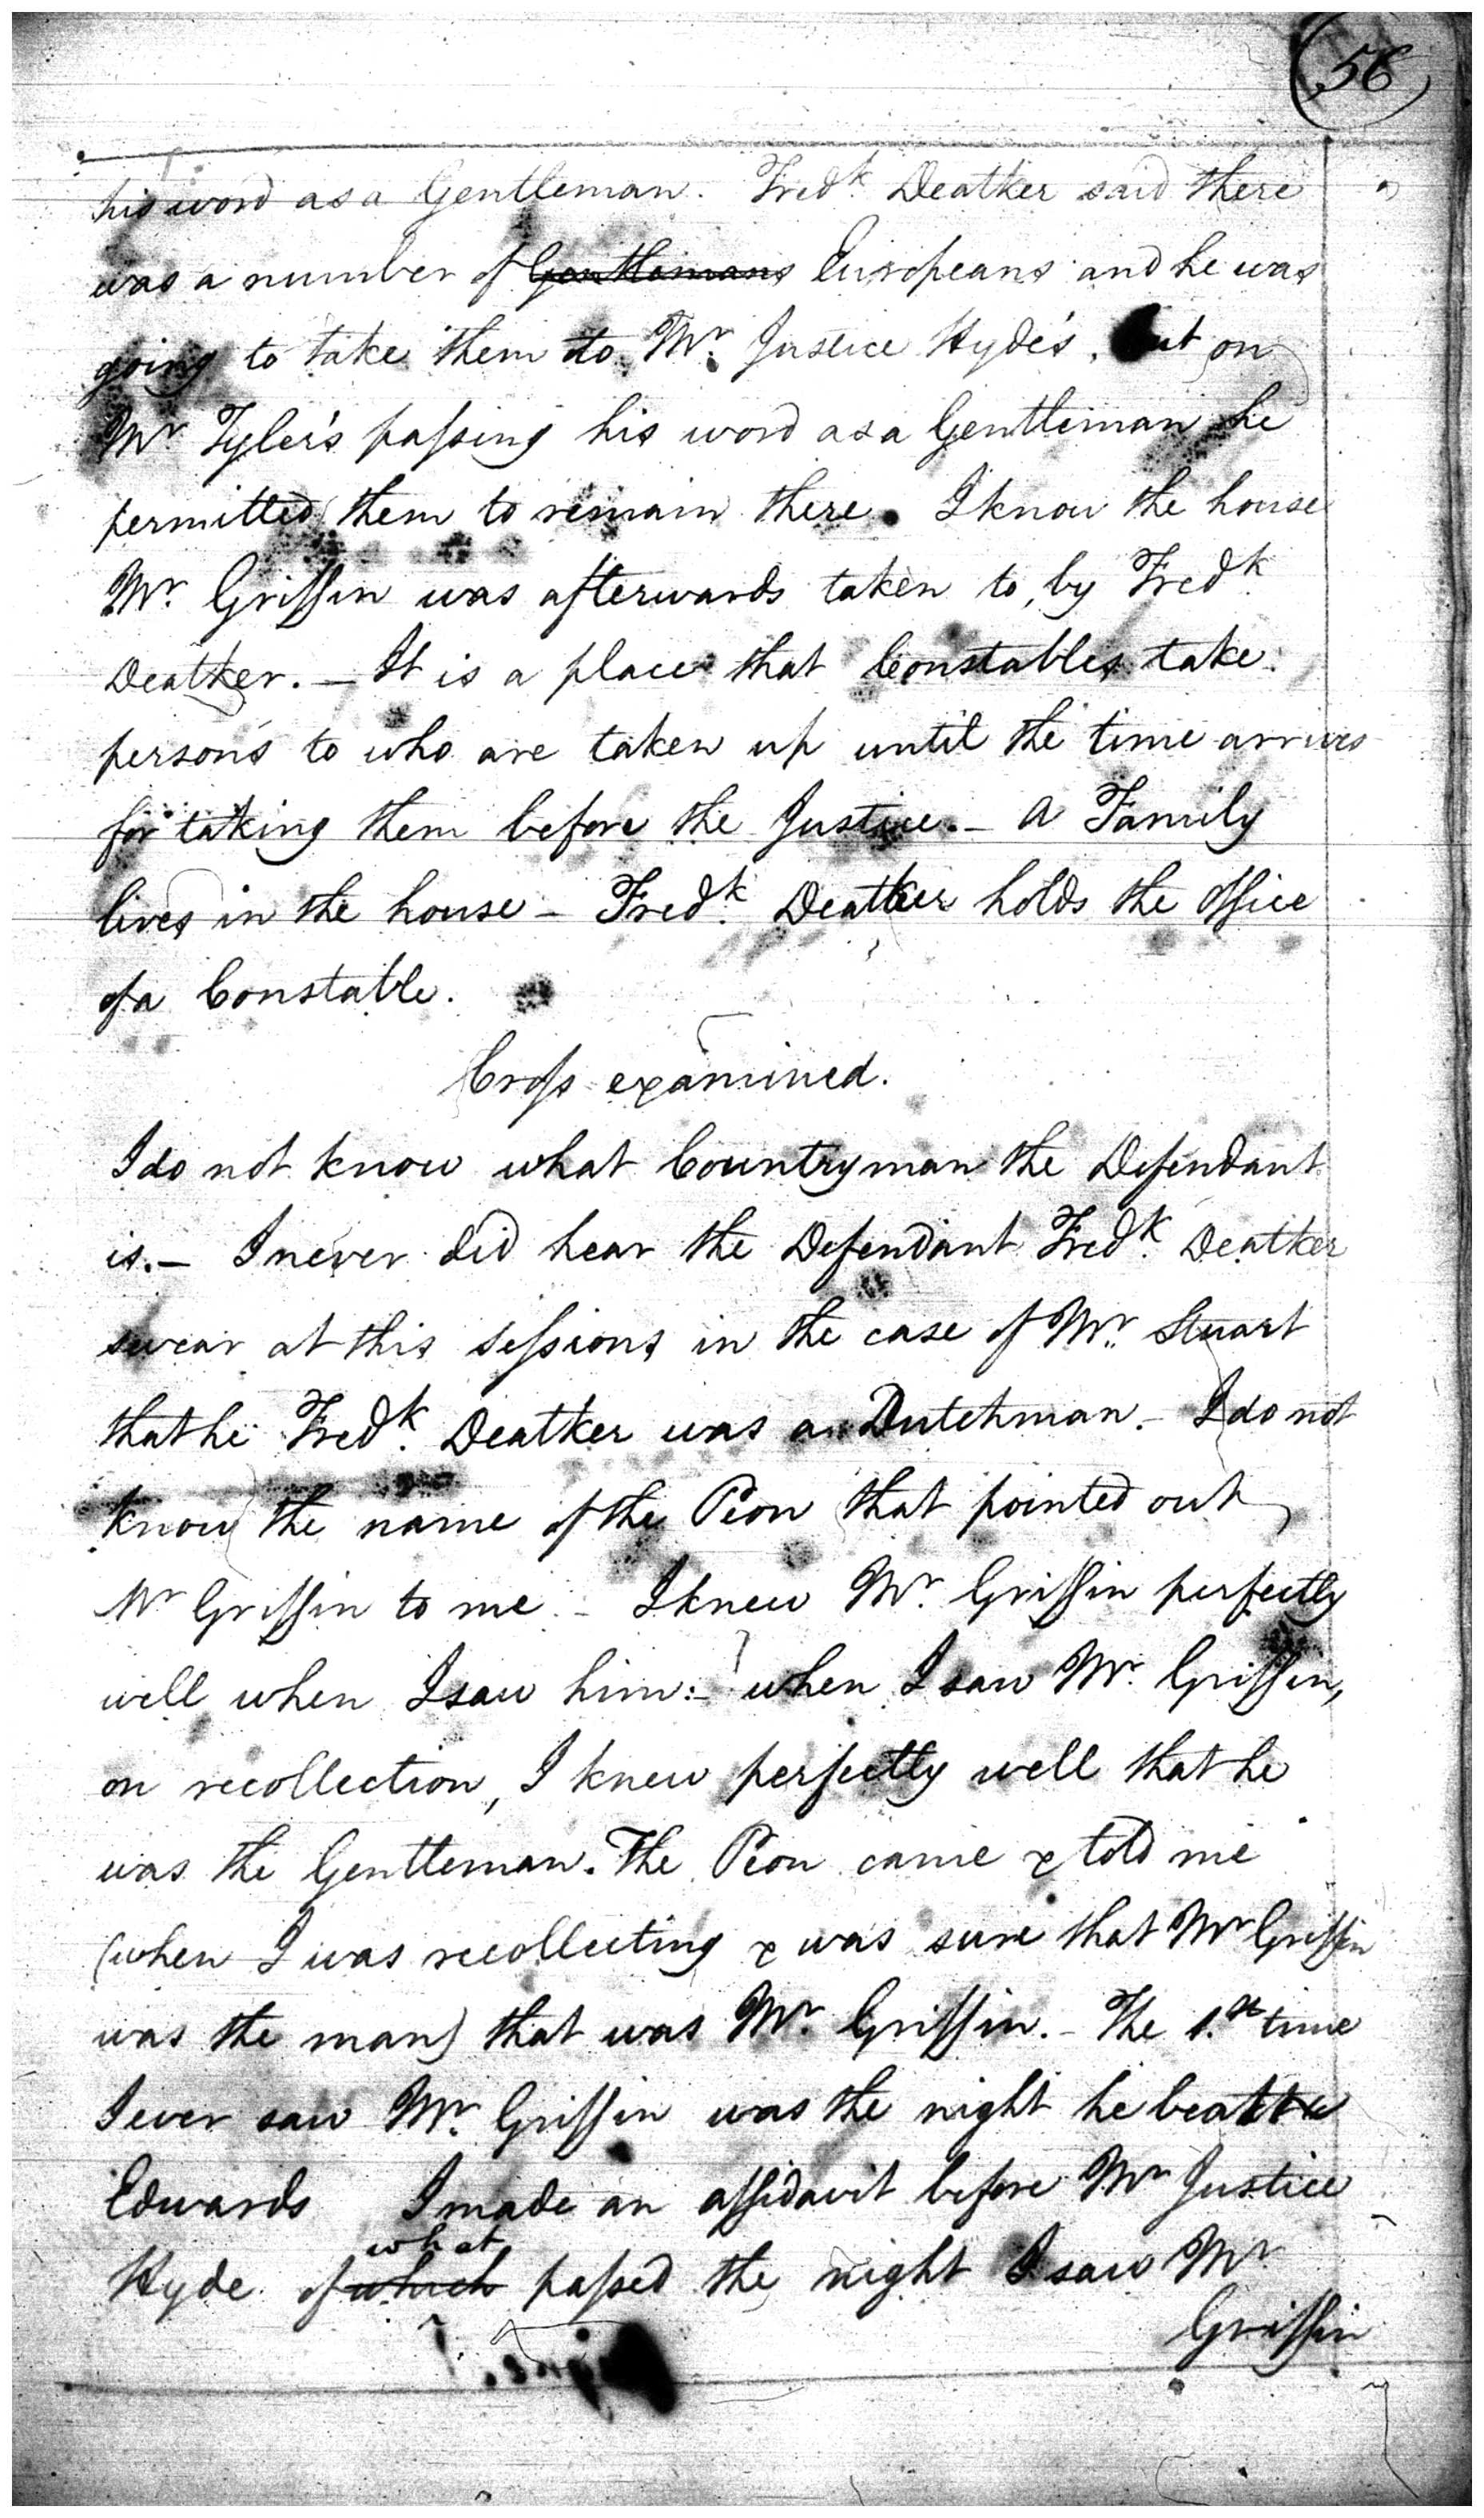 (56)
his word as a Gentleman. Fredk. Deatker said there
was a number of Gentlemans Europeans and he was
going to take them to Mr. Justice Hyde's, but on
Mr. Tyler's paſsing his word as a Gentleman he
permitted them to remain there. I know the house
Mr. Griffin was afterwards taken to, by Fredk.
Deatker. – It is a place that Constables take
persons to who are taken up until the time arrives
for taking them before the Justice. – A Family
lives in the house – Fredk. Deatker holds the office
of a Constable.
Croſs examined.
I do not know what Countryman the Defendant
is. – I never did hear the Defendant Fredk. Deatker
swear at this seſsions in the case of Mr. Stuart
that he Fredk. Deatker was a Dutchman. – I do not
know the name of the Peon that pointed out
Mr Griffin to me. – I knew Mr. Griffin perfectly
well when I saw him: – when I saw Mr. Griffin,
on recollection, I knew perfectly well that he
was the Gentleman. The Peon came & told me
(when I was recollecting & was sure that Mr Griffin
was the man) that was Mr. Griffin. – The 1.st time
I ever saw Mr. Griffin was the night he beat
Edwards I made an affidavit before Mr Justice
what
Hyde of which paſsed the night I saw Mr
Griffin